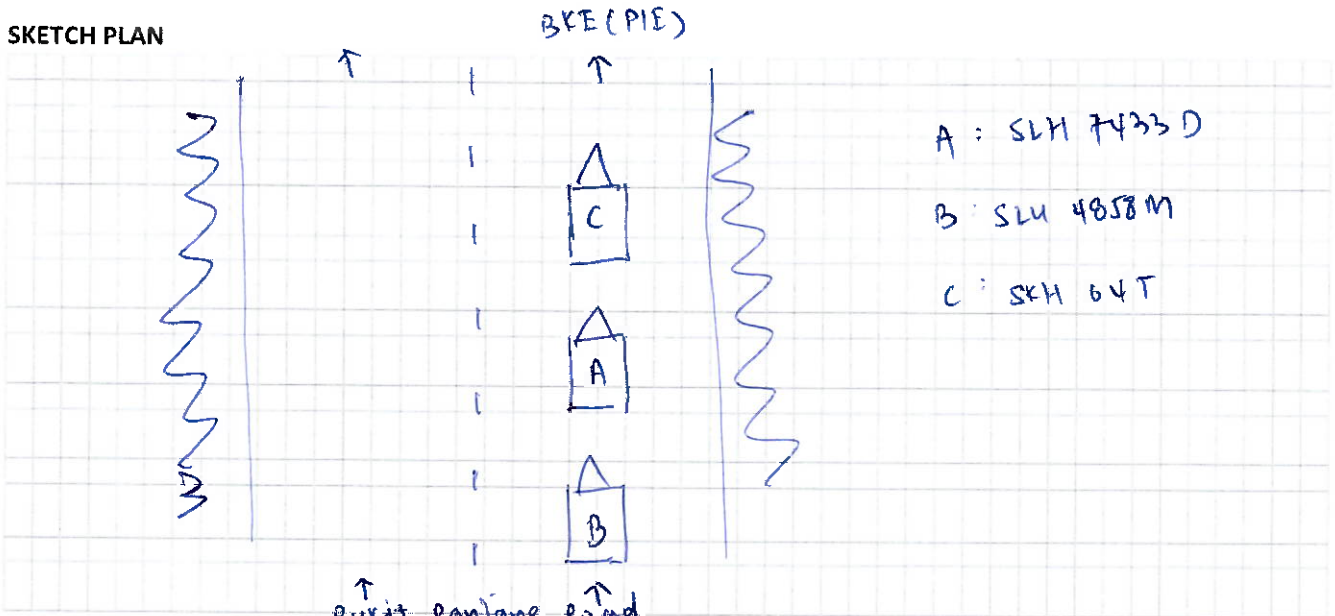 SKETCH PLAN
BKE (PIE)
A : SLH 7433 D
B : SLU 4858 M
C : SKH 64 T
C
A
B
Bukit Panjang Road